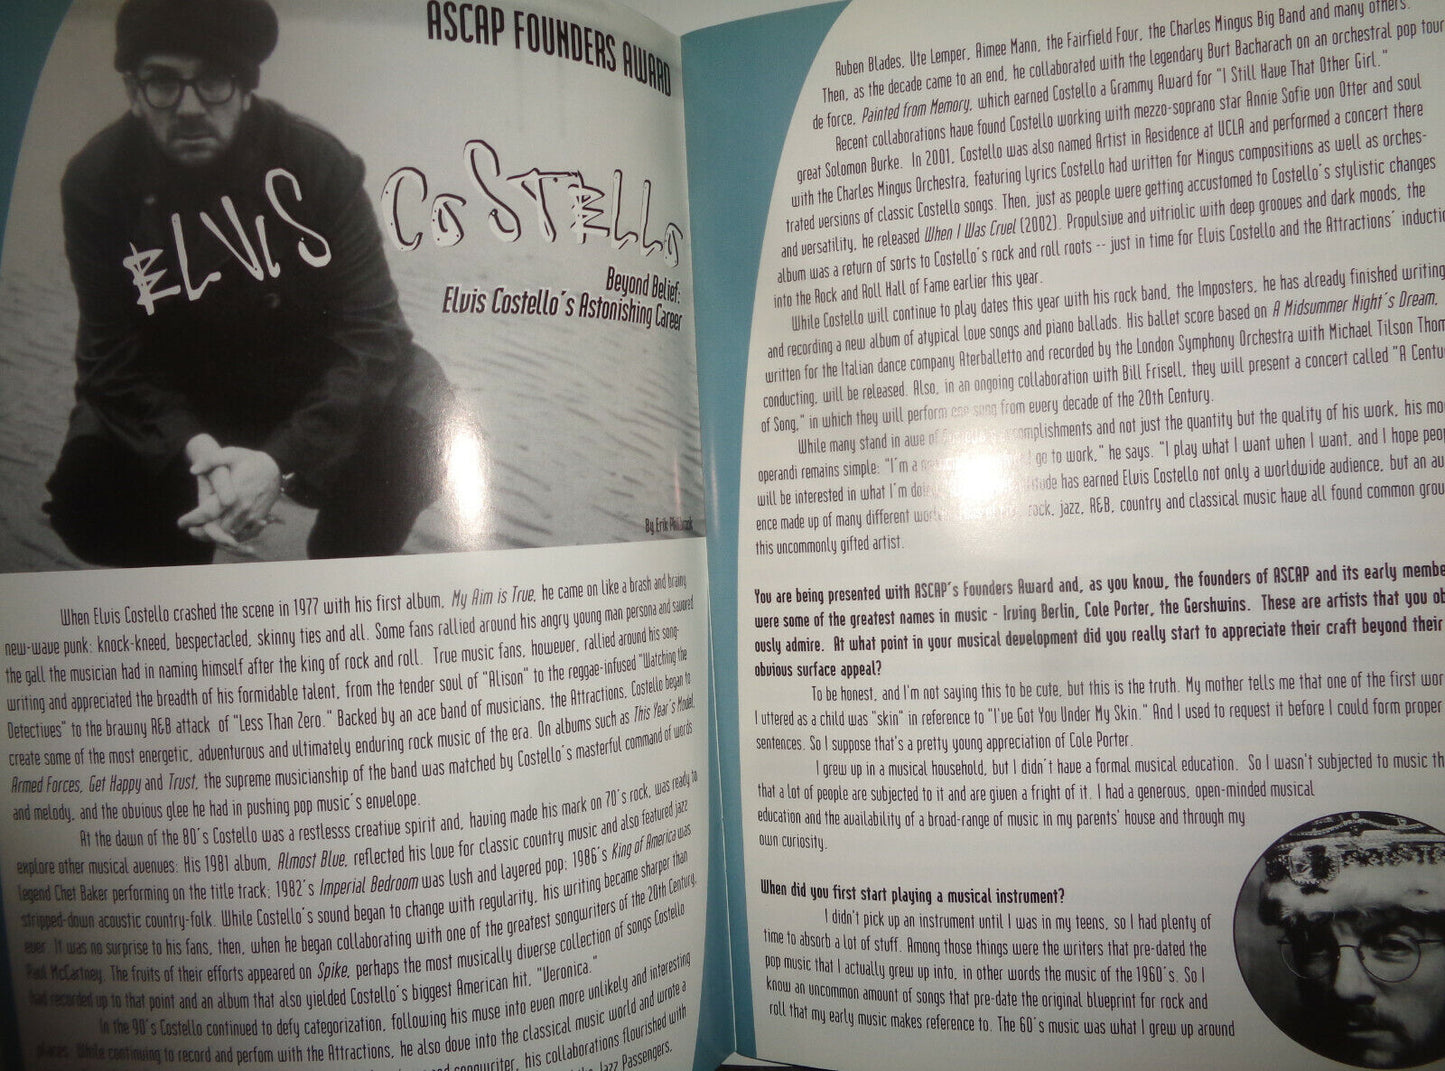 ASCAP FOUNDERS AWARD
ELVIS COSTELLO
Beyond Belief:
Elvis Costello's Astonishing Career
By Erik
When Elvis Costello crashed the scene in 1977 with his first album, My Aim is True, he came on like a brash and brainy
new-wave punk: knock-kneed, bespectacled, skinny ties and all. Some fans rallied around his angry young man persona and savored
the gall the musician had in naming himself after the king of rock and roll. True music fans, however, rallied around his song-
writing and appreciated the breadth of his formidable talent, from the tender soul of "Alison" to the reggae-infused "Watching the
Detectives" to the brawny R&B attack of "Less Than Zero." Backed by an ace band of musicians, the Attractions, Costello began to
create some of the most energetic, adventurous and ultimately enduring rock music of the era. On albums such as This Year's Model,
Armed Forces, Get Happy and Trust, the supreme musicianship of the band was matched by Costello's masterful command of words
and melody, and the obvious glee he had in pushing pop music's envelope.
At the dawn of the 80's Costello was a restlesss creative spirit and, having made his mark on 70's rock, was ready to
explore other musical avenues: His 1981 album, Almost Blue, reflected his love for classic country music and also featured jazz
legend Chet Baker performing on the title track; 1982's Imperial Bedroom was lush and layered pop; 1986's King of America was
stripped-down acoustic country-folk. While Costello's sound began to change with regularity, his writing became sharper than
ever. It was no surprise to his fans, then, when he began collaborating with one of the greatest songwriters of the 20th Century,
Paul McCartney. The fruits of their efforts appeared on Spike, perhaps the most musically diverse collection of songs Costello
had recorded up to that point and an album that also yielded Costello's biggest American hit, "Veronica."
In the 90's Costello continued to defy categorization, following his muse into even more unlikely and interesting
places. While continuing to record and perfom with the Attractions, he also dove into the classical music world and wrote a
and songwriter, his collaborations flourished with
the Jazz Passengers,
Ruben Blades, Ute Lemper, Aimee Mann, the Fairfield Four, the Charles Mingus Big Band and many others.
Then, as the decade came to an end, he collaborated with the legendary Burt Bacharach on an orchestral pop tour
de force, Painted from Memory, which earned Costello a Grammy Award for "I Still Have That Other Girl."
Recent collaborations have found Costello working with mezzo-soprano star Annie Sofie von Otter and soul
great Solomon Burke. In 2001, Costello was also named Artist in Residence at UCLA and performed a concert there
with the Charles Mingus Orchestra, featuring lyrics Costello had written for Mingus compositions as well as orches-
trated versions of classic Costello songs. Then, just as people were getting accustomed to Costello's stylistic changes
and versatility, he released When I Was Cruel (2002). Propulsive and vitriolic with deep grooves and dark moods, the
album was a return of sorts to Costello's rock and roll roots -- just in time for Elvis Costello and the Attractions' inductio
into the Rock and Roll Hall of Fame earlier this year.
While Costello will continue to play dates this year with his rock band, the Imposters, he has already finished writing
and recording a new album of atypical love songs and piano ballads. His ballet score based on A Midsummer Night's Dream,
written for the Italian dance company Aterballetto and recorded by the London Symphony Orchestra with Michael Tilson Thom
conducting, will be released. Also, in an ongoing collaboration with Bill Frisell, they will present a concert called "A Centu
of Song," in which they will perform one song from every decade of the 20th Century.
While many stand in awe of accomplishments and not just the quantity but the quality of his work, his mo
operandi remains simple: "I'm a I go to work," he says. "I play what I want when I want, and I hope peop
will be interested in what I'm has earned Elvis Costello not only a worldwide audience, but an au
ence made up of many different rock, jazz, R&B, country and classical music have all found common grou
this uncommonly gifted artist.
You are being presented with ASCAP's Founders Award and, as you know, the founders of ASCAP and its early membe
were some of the greatest names in music - Irving Berlin, Cole Porter, the Gershwins. These are artists that you ob
ously admire. At what point in your musical development did you really start to appreciate their craft beyond their
obvious surface appeal?
To be honest, and I'm not saying this to be cute, but this is the truth. My mother tells me that one of the first wor
I uttered as a child was "skin" in reference to "I've Got You Under My Skin." And I used to request it before I could form proper
sentences. So I suppose that's a pretty young appreciation of Cole Porter.
I grew up in a musical household, but I didn't have a formal musical education. So I wasn't subjected to music th
that a lot of people are subjected to it and are given a fright of it. I had a generous, open-minded musical
education and the availability of a broad-range of music in my parents' house and through my
own curiosity.
When did you first start playing a musical instrument?
I didn't pick up an instrument until I was in my teens, so I had plenty of
time to absorb a lot of stuff. Among those things were the writers that pre-dated the
pop music that I actually grew up into, in other words the music of the 1960's. So I
know an uncommon amount of songs that pre-date the original blueprint for rock and
roll that my early music makes reference to. The 60's music was what I grew up around